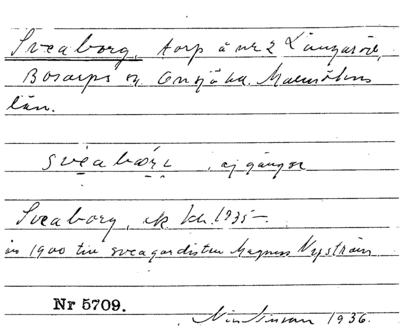 Sveaborg, torp å nr 2 Långaröd,
Bosarps sn Onsjö hd. Malmöhus
län.
sveabórj , ej gängse
Sveaborg, ek kh. 1935 –
in 1900 sveagardisten Magnus Nyström
Nr 5709.
1936.